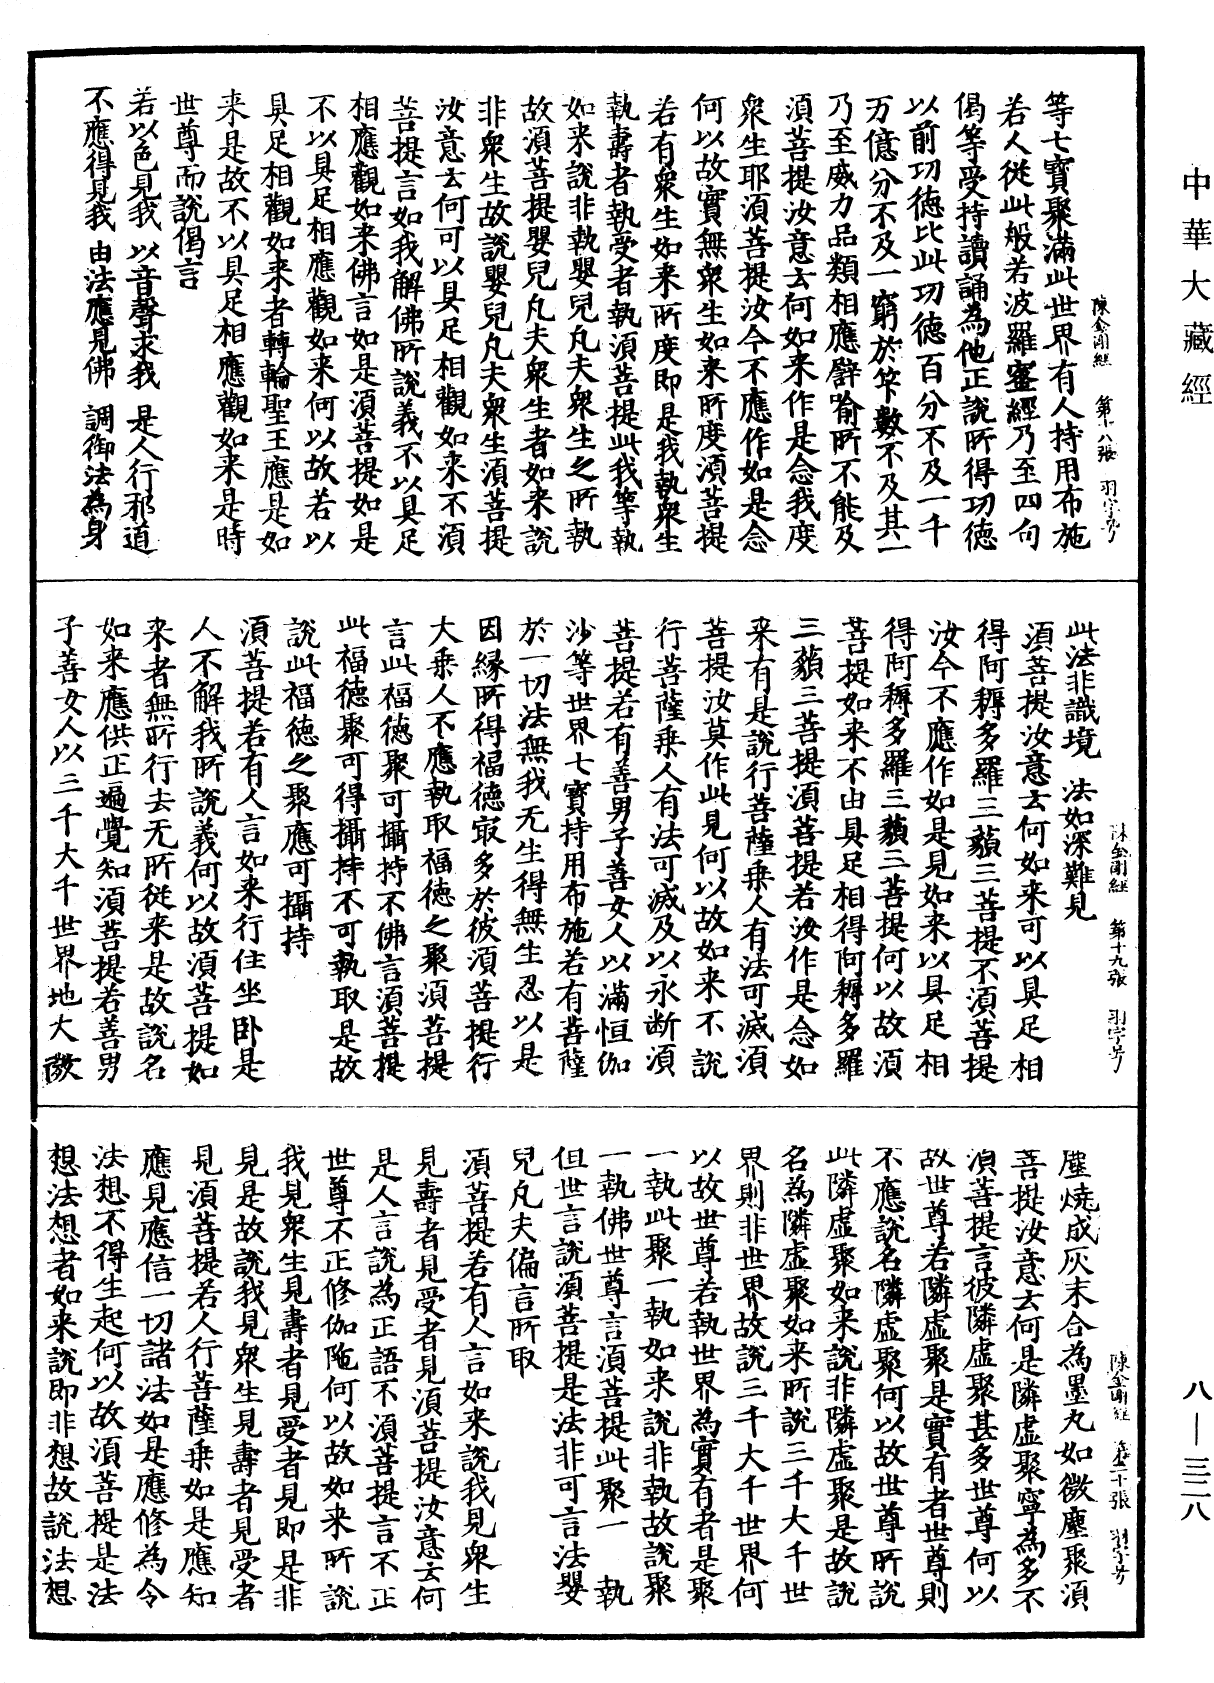 中華大藏經
陳金剛經 第十八張 羽字号
等七寶聚滿此世界有人持用布施
若人從此般若波羅蜜經乃至四句
偈等受持讀誦為他正說所得功德
以前功德比此功德百分不及一千
万億分不及一窮於筭數不及其一
乃至威力品類相應譬喻所不能及
須菩提汝意云何如来作是念我度
衆生耶須菩提汝今不應作如是念
何以故實無衆生如来所度須菩提
若有衆生如来所度即是我執衆生
執壽者執受者執須菩提此我等執
如来說非執嬰兒凡夫衆生之所執
故須菩提嬰兒凡夫衆生者如来說
非衆生故說嬰兒凡夫衆生須菩提
汝意云何可以具足相觀如来不須
菩提言如我解佛所說義不以具足
相應觀如来佛言如是須菩提如是
不以具足相應觀如来何以故若以
具足相觀如来者轉輪聖王應是如
来是故不以具足相應觀如来是時
世尊而說偈言
若以色見我 以音聲求我 是人行邪道
不應得見我 由法應見佛 調御法為身
陳金剛經 第十九張 羽字号
此法非識境 法如深難見
須菩提汝意云何如来可以具足相
得阿耨多羅三藐三菩提不須菩提
汝今不應作如是見如来以具足相
得阿耨多羅三藐三菩提何以故須
菩提如来不由具足相得阿耨多羅
三藐三菩提須菩提若汝作是念如
来有是說行菩薩乗人有法可滅須
菩提汝莫作此見何以故如来不說
行菩薩乗人有法可滅及以永断須
菩提若有善男子善女人以滿恒伽
沙等世界七寶持用布施若有菩薩
於一切法無我无生得無生忍以是
因縁所得福德冣多於彼須菩提行
大乗人不應執取福德之聚須菩提
言此福德聚可攝持不佛言須菩提
此福德聚可得攝持不可執取是故
說此福德之聚應可攝持
須菩提若有人言如来行住坐卧是
人不解我所說義何以故須菩提如
来者無所行去无所從来是故說名
如来應供正遍覺知須菩提若善男
子善女人以三千大千世界地大微
陳金剛經 第二十張 羽字号
塵燒成灰末合為墨丸如微塵聚須
菩提汝意云何是隣虛聚寧為多不
須菩提言彼隣虛聚甚多世尊何以
故世尊若隣虛聚是實有者世尊則
不應說名隣虛聚何以故世尊所說
此隣虛聚如来說非隣虛聚是故說
名為隣虛聚如来所說三千大千世
界則非世界故說三千大千世界何
以故世尊若執世界為實有者是聚
一執此聚一執如来說非執故說聚
一執佛世尊言須菩提此聚一執
但世言說須菩提是法非可言法嬰
兒凡夫偏言所取
須菩提若有人言如来說我見衆生
見壽者見受者見須菩提汝意云何
是人言說為正語不須菩提言不正
世尊不正修伽陁何以故如来所說
我見衆生見壽者見受者見即是非
見是故說我見衆生見壽者見受者
見須菩提若人行菩薩乗如是應知
應見應信一切諸法如是應修為令
法想不得生起何以故須菩提是法
想法想者如来說即非想故說法想
八—三二八